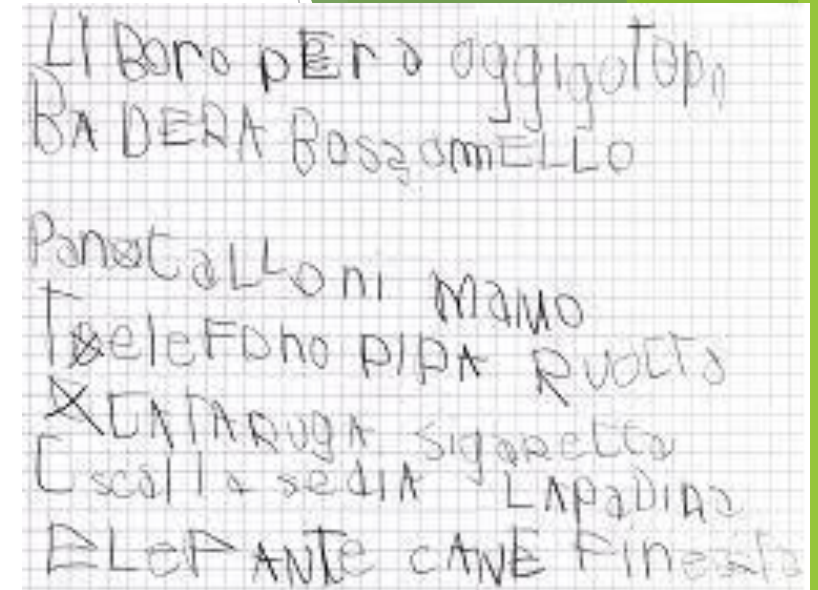 LI Boro pEra oggigotopo
BA DERA BoszomELLO
PanotaLLoni MaMO
TeleFono PIPA RuoTTa
CATARUGA sigaretta
scalla sedIA LAPaDIna
ELeFANTe CANE Finesta